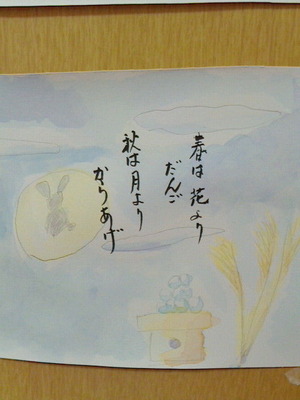 春は花より
だんご
秋は月より
からあげ